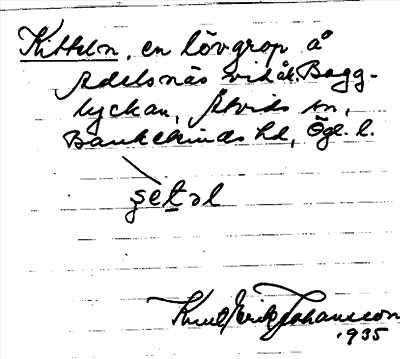 Kitteln, en lövgrop å
Adelsnäs vid åk. Bagg-
lyckan, Åtvids sn,
Bankekinds hd, Ögl. l.
şetəl
Knut Erik Johansson
1935